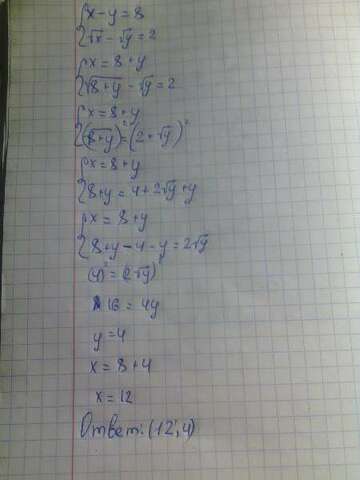 {x - y = 8
{√x - √y = 2
{x = 8 + y
{√8+y - √y = 2
{x = 8 + y
{(√8+y)² = (2 + √y)²
{x = 8 + y
{8 + y = 4 + 2√y + y
{x = 8 + y
{8 + y - 4 - y = 2√y
(4)² = (2√y)²
16 = 4y
y = 4
x = 8 + 4
x = 12
Ответ: (12; 4)